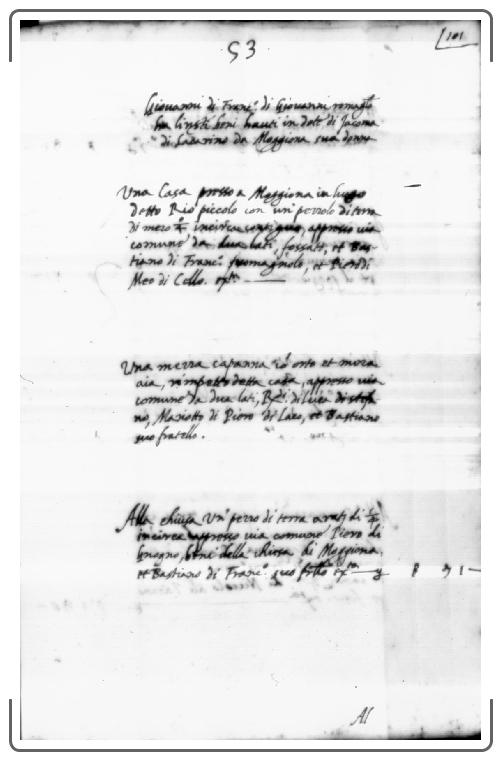 101
53
Giovanni di Franc.º di Giovanni romagl
ha l'insti beni hauti in dote di Jacoma
di Savarino da Moggiona sua donna
Una Casa presso a Moggiona in luogo
detto Rio piccolo con un' pezzolo di terra
di mezo incirca contiguo, appresso via
comune da dua lati, fossato, et Bas-
tiano di Franc.º romagnolo, et Piero di
Meo di Cello.
Una mezza capanna co orto et meza
aia, rimpetto detta casa, appresso via
comune da dua lati, di Luca di stefa
no, Mariotto di Piero di Lazo, et Bastiano
suo fratello.
Alla chiusa un' pezzo di terra arat.ª di
incirca appresso via comune Piero di
beni della chiesa di Moggiona,
et Bastiano di Franc.º suo frllo 8 31
Al